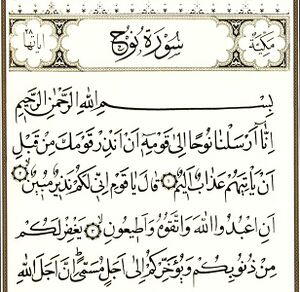 مكية سورة نوح آياتها ٢٨
بسم الله الرحمن الرحيم
إنا أرسلنا نوحا إلى قومه أن أنذر قومك من قبل
أن يأتيهم عذاب أليم ۝ قال يا قوم إني لكم نذير مبين ۝
أن اعبدوا الله واتقوه وأطيعون ۝ يغفر لكم
من ذنوبكم ويؤخركم إلى أجل مسمى إن أجل الله